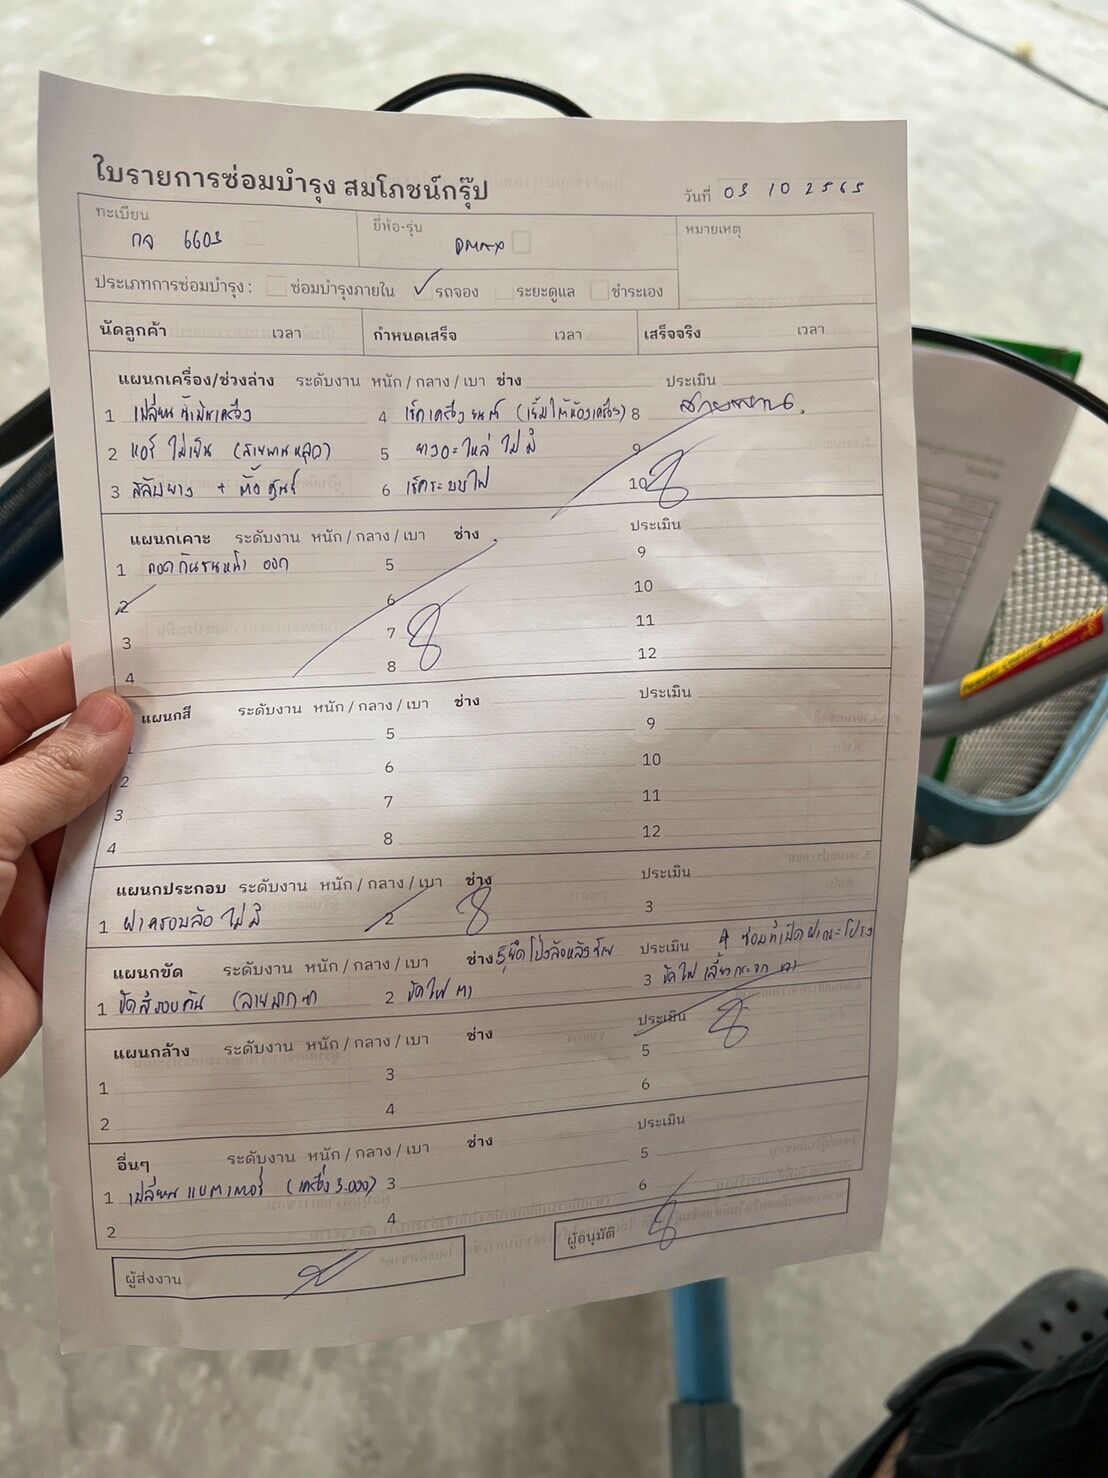 ใบรายการซ่อมบำรุง สมโภชน์กรุ๊ป
วันที่ 03 10 2565
ทะเบียน ยี่ห้อ-รุ่น หมายเหตุ
กจ 6603 DMAX
ประเภทการซ่อมบำรุง : ซ่อมบำรุงภายใน รถจอง ระยะดูแล ชำระเอง
นัดลูกค้า เวลา กำหนดเสร็จ เวลา เสร็จจริง เวลา
แผนกเครื่อง/ช่วงล่าง ระดับงาน หนัก / กลาง / เบา ช่าง ประเมิน
1 เปลี่ยนน้ำมันเครื่อง 4 เช็คเครื่องยนต์ 8 สายพาน
2 แอร์ ไม่เย็น (สายพานหลุด) 5 ยางอะไหล่ ไม่มี 9
3 สลับยาง + ตั้งศูนย์ 6 เช็คระบบไฟ 10
แผนกเคาะ ระดับงาน หนัก / กลาง / เบา ช่าง ประเมิน
1 ถอดกันชนหน้า ออก 5 9
2 6 10
3 7 11
4 8 12
แผนกสี ระดับงาน หนัก / กลาง / เบา ช่าง ประเมิน
1 5 9
2 6 10
3 7 11
4 8 12
แผนกประกอบ ระดับงาน หนัก / กลาง / เบา ช่าง ประเมิน
1 ฝาครอบล้อ ไม่มี 2 3
แผนกขัด ระดับงาน หนัก / กลาง / เบา ช่าง ประเมิน 4 ซ่อมที่เปิดฝากระโปรง
1 ขัดสีรอบคัน 2 ขัดไฟ 3 ขัดไฟเลี้ยว
แผนกล้าง ระดับงาน หนัก / กลาง / เบา ช่าง ประเมิน
1 3 5
2 4 6
อื่นๆ ระดับงาน หนัก / กลาง / เบา ช่าง ประเมิน
1 เปลี่ยน แบตเตอรี่ (เครื่อง 3.000) 3 5
2 4 6
ผู้ส่งงาน ผู้อนุมัติ